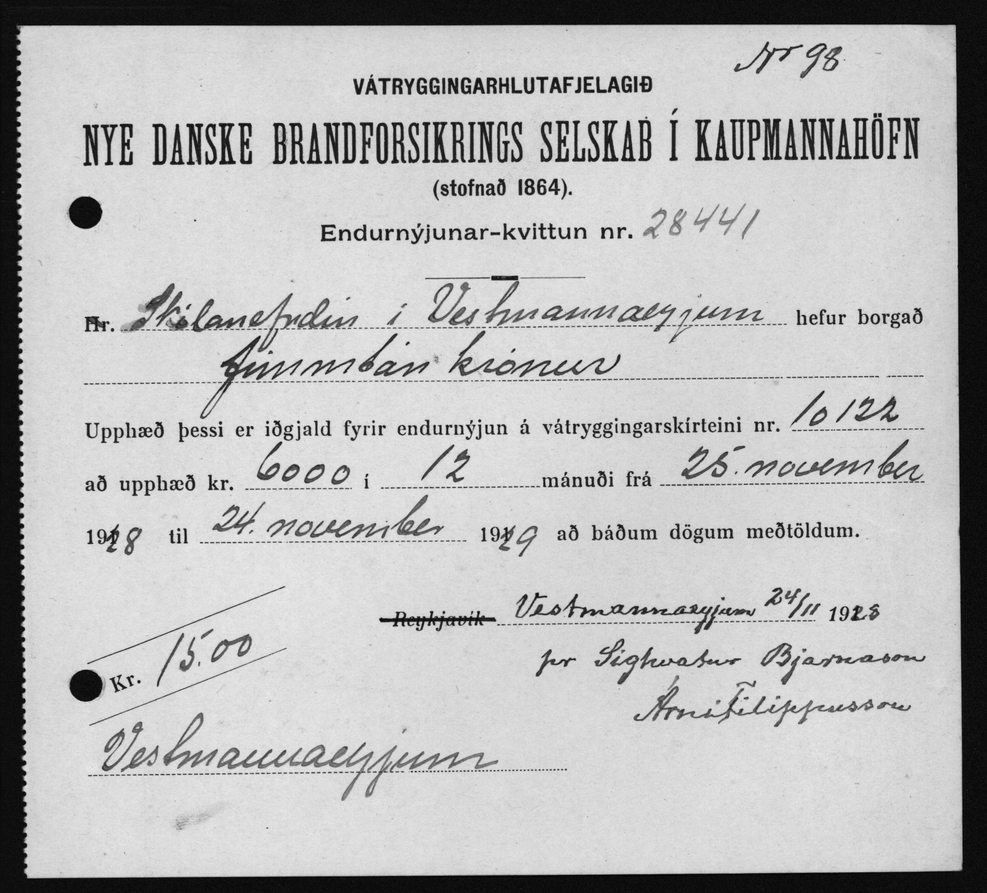 Nr 98
VÁTRYGGINGARHLUTAFJELAGIÐ
NYE DANSKE BRANDFORSIKRINGS SELSKAB Í KAUPMANNAHÖFN
(stofnað 1864).
Endurnýjunar-kvittun nr. 28441
Hr. Skólanefndin í Vestmannaeyjum hefur borgað
fimmtán krónur
Upphæð þessi er iðgjald fyrir endurnýjun á vátryggingarskírteini nr. 10122
að upphæð kr. 6000 í 12 mánuði frá 25. november
1928 til 24. november 1929 að báðum dögum meðtöldum.
Reykjavík Vestmannaeyjum 24/11 1928
pr Sighvatur Bjarnason
Árni Filippusson
Kr. 15.00
Vestmannaeyjum